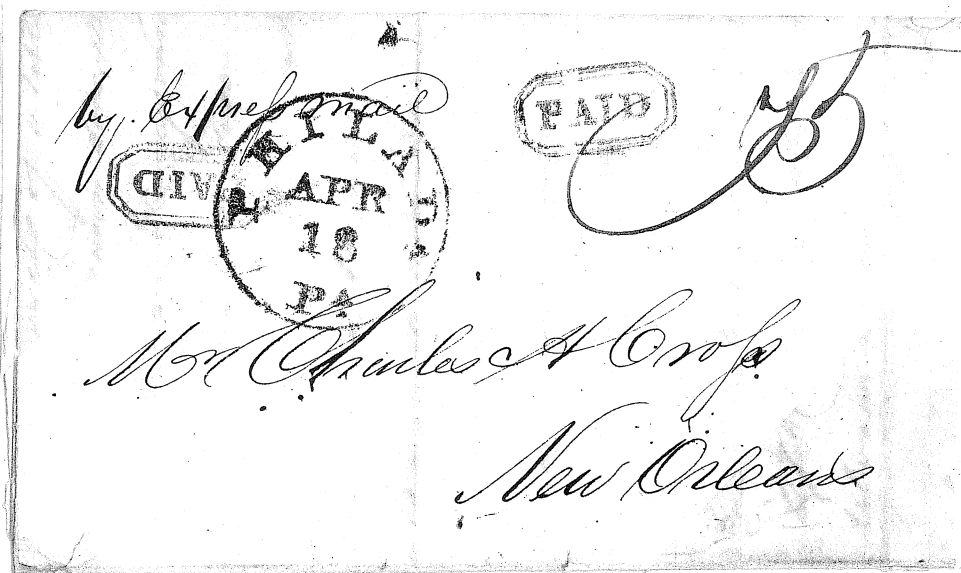 by. Express mail
PAID
PAID
PHILADA.
APR
18
PA
Mr Charles H Cross
New Orleans